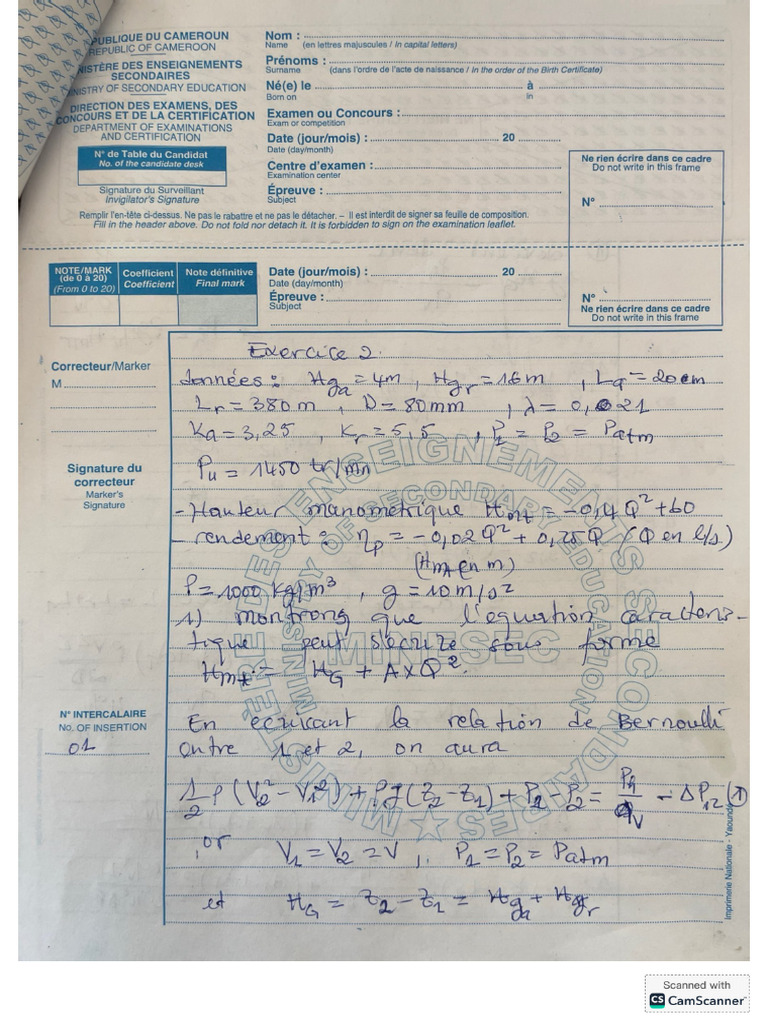 RÉPUBLIQUE DU CAMEROUN
REPUBLIC OF CAMEROON
MINISTÈRE DES ENSEIGNEMENTS
SECONDAIRES
MINISTRY OF SECONDARY EDUCATION
DIRECTION DES EXAMENS, DES
CONCOURS ET DE LA CERTIFICATION
DEPARTMENT OF EXAMINATIONS
AND CERTIFICATION
N° de Table du Candidat
No. of the candidate desk
Signature du Surveillant
Invigilator's Signature
Nom :
Name (en lettres majuscules / In capital letters)
Prénoms :
Surname (dans l'ordre de l'acte de naissance / In the order of the Birth Certificate)
Né(e) le à
Born on in
Examen ou Concours :
Exam or competition
Date (jour/mois) : 20
Date (day/month)
Centre d'examen :
Examination center
Épreuve :
Subject
Ne rien écrire dans ce cadre
Do not write in this frame
N°
Remplir l'en-tête ci-dessus. Ne pas le rabattre et ne pas le détacher. – Il est interdit de signer sa feuille de composition.
Fill in the header above. Do not fold nor detach it. It is forbidden to sign on the examination leaflet.
NOTE/MARK
(de 0 à 20)
(From 0 to 20)
Coefficient
Coefficient
Note définitive
Final mark
Date (jour/mois) : 20
Date (day/month)
Épreuve :
Subject
N°
Ne rien écrire dans ce cadre
Do not write in this frame
Correcteur/Marker
M
Signature du
correcteur
Marker's
Signature
N° INTERCALAIRE
No. OF INSERTION
01
Exercice 2.
données : Hga = 4m , Hgr = 16m , La = 20cm
Lr = 380 m , D = 80mm , λ = 0,021
Ka = 3,25 , Kr = 5,5 , P1 = P2 = Patm
Pu = 1450 tr/mn
- Hauteur manometrique Hmt = -0,4Q² + 60
- rendement : ηp = -0,02Q² + 0,25Q (Q en l/s)
(Hmt en m)
ρ = 1000 kg/m³ , g = 10 m/s²
1) montrons que l'equation caracteris-
tique peut s'ecrire sous forme
Hmt = HG + A×Q².
En ecricant la relation de Bernoulli
entre 1 et 2, on aura
1/2 ρ(V2² - V1²) + ρg(Z2 - Z1) + P1 - P2 = P1/qv - ΔP12 (1)
or V1 = V2 = V , P1 = P2 = Patm
et HG = Z2 - Z1 = Hga + Hgr
MINISTÈRE DES ENSEIGNEMENTS SECONDAIRES
MINISTRY OF SECONDARY EDUCATION
MINESEC
Imprimerie Nationale - Yaoundé
Scanned with
CS CamScanner